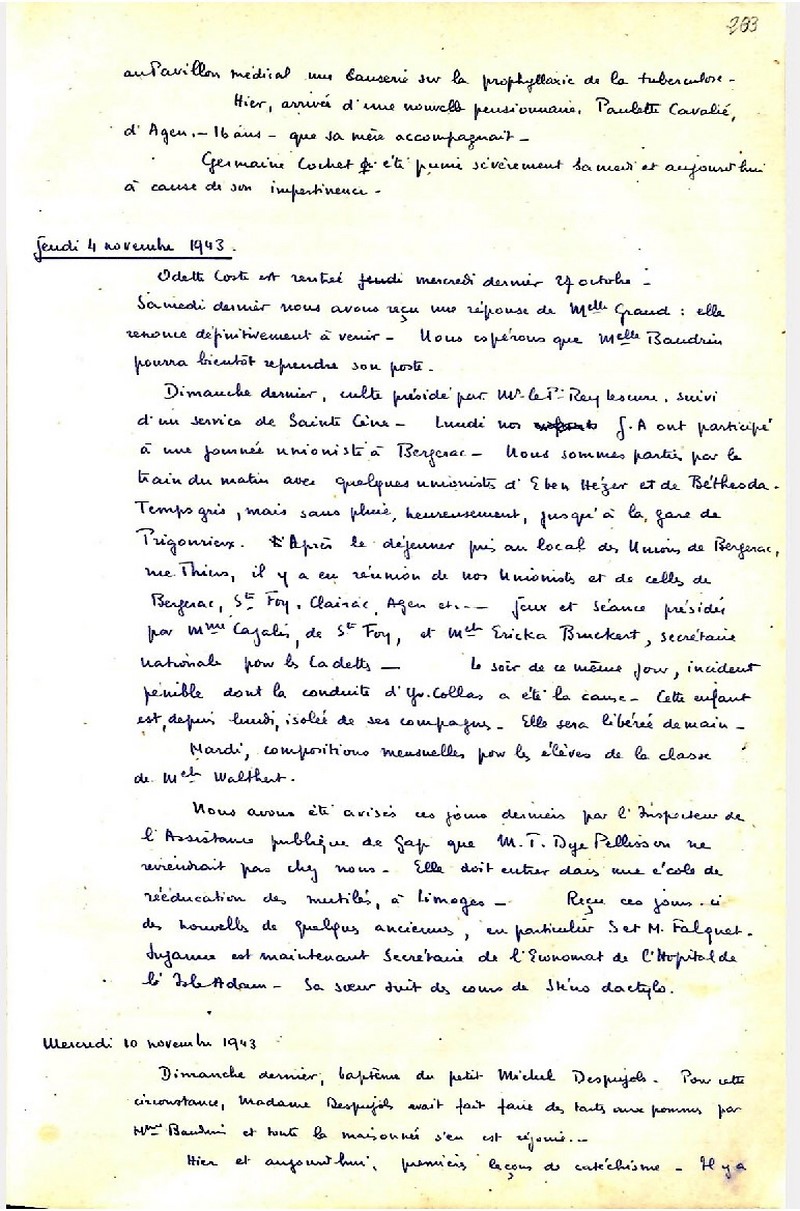 203
au Pavillon médical une causerie sur la prophyllaxie de la tuberculose -
Hier, arrivée d'une nouvelle pensionnaire, Paulette Cavalié,
d'Agen. - 16 ans - que sa mère accompagnait -
Germaine Cochet a été punie sévèrement samedi et aujourd'hui
à cause de son impertinence -
Jeudi 4 novembre 1943.
Odette Coste est rentrée jeudi mercredi dernier 27 octobre -
Samedi dernier nous avons reçu une réponse de Melle Graud : elle
renonce définitivement à venir - Nous espérons que Melle Baudrin
pourra bientôt reprendre son poste.
Dimanche dernier, culte présidé par Mr le Pr Rey Lescure, suivi
d'un service de Sainte Cène - Lundi nos enfants J.A ont participé
à une journée unioniste à Bergerac - Nous sommes partis par le
train du matin avec quelques unionistes d'Eben Hézer et de Béthesda.
Temps gris, mais sans pluie, heureusement, jusqu'à la gare de
Prigonrieux. Après le déjeuner pris au local des Unions de Bergerac,
rue Thiers, il y a eu réunion de nos Unionistes et de celles de
Bergerac, Ste Foy, Clairac, Agen etc. -- Jeux et séance présidés
par Mme Cazalis, de Ste Foy, et Melle Ericka Bruckert, secrétaire
nationale pour les Cadettes - Le soir de ce même jour, incident
pénible dont la conduite d'Yv. Collas a été la cause - Cette enfant
est, depuis lundi, isolée de ses compagnes - Elle sera libérée demain -
Mardi, compositions mensuelles pour les élèves de la classe
de Melle Walthert.
Nous avons été avisés ces jours derniers par l'Inspecteur de
l'Assistance publique de Gap que M.T. Dye Pellisson ne
reviendrait pas chez nous - Elle doit entrer dans une école de
rééducation des mutilés, à Limoges - Reçu ces jours-ci
des nouvelles de quelques anciennes, en particulier S et M. Falquet.
Suzanne est maintenant secrétaire de l'Economat de l'Hopital de
l'Isle Adam - Sa sœur suit des cours de Sténo dactylo.
Mercredi 10 novembre 1943
Dimanche dernier, baptême du petit Michel Despujols. Pour cette
circonstance, Madame Despujols avait fait faire des tartes aux pommes par
Mme Baudrin et toute la maisonnée s'en est réjouie. -
Hier et aujourd'hui, premières leçons de catéchisme - Il y a